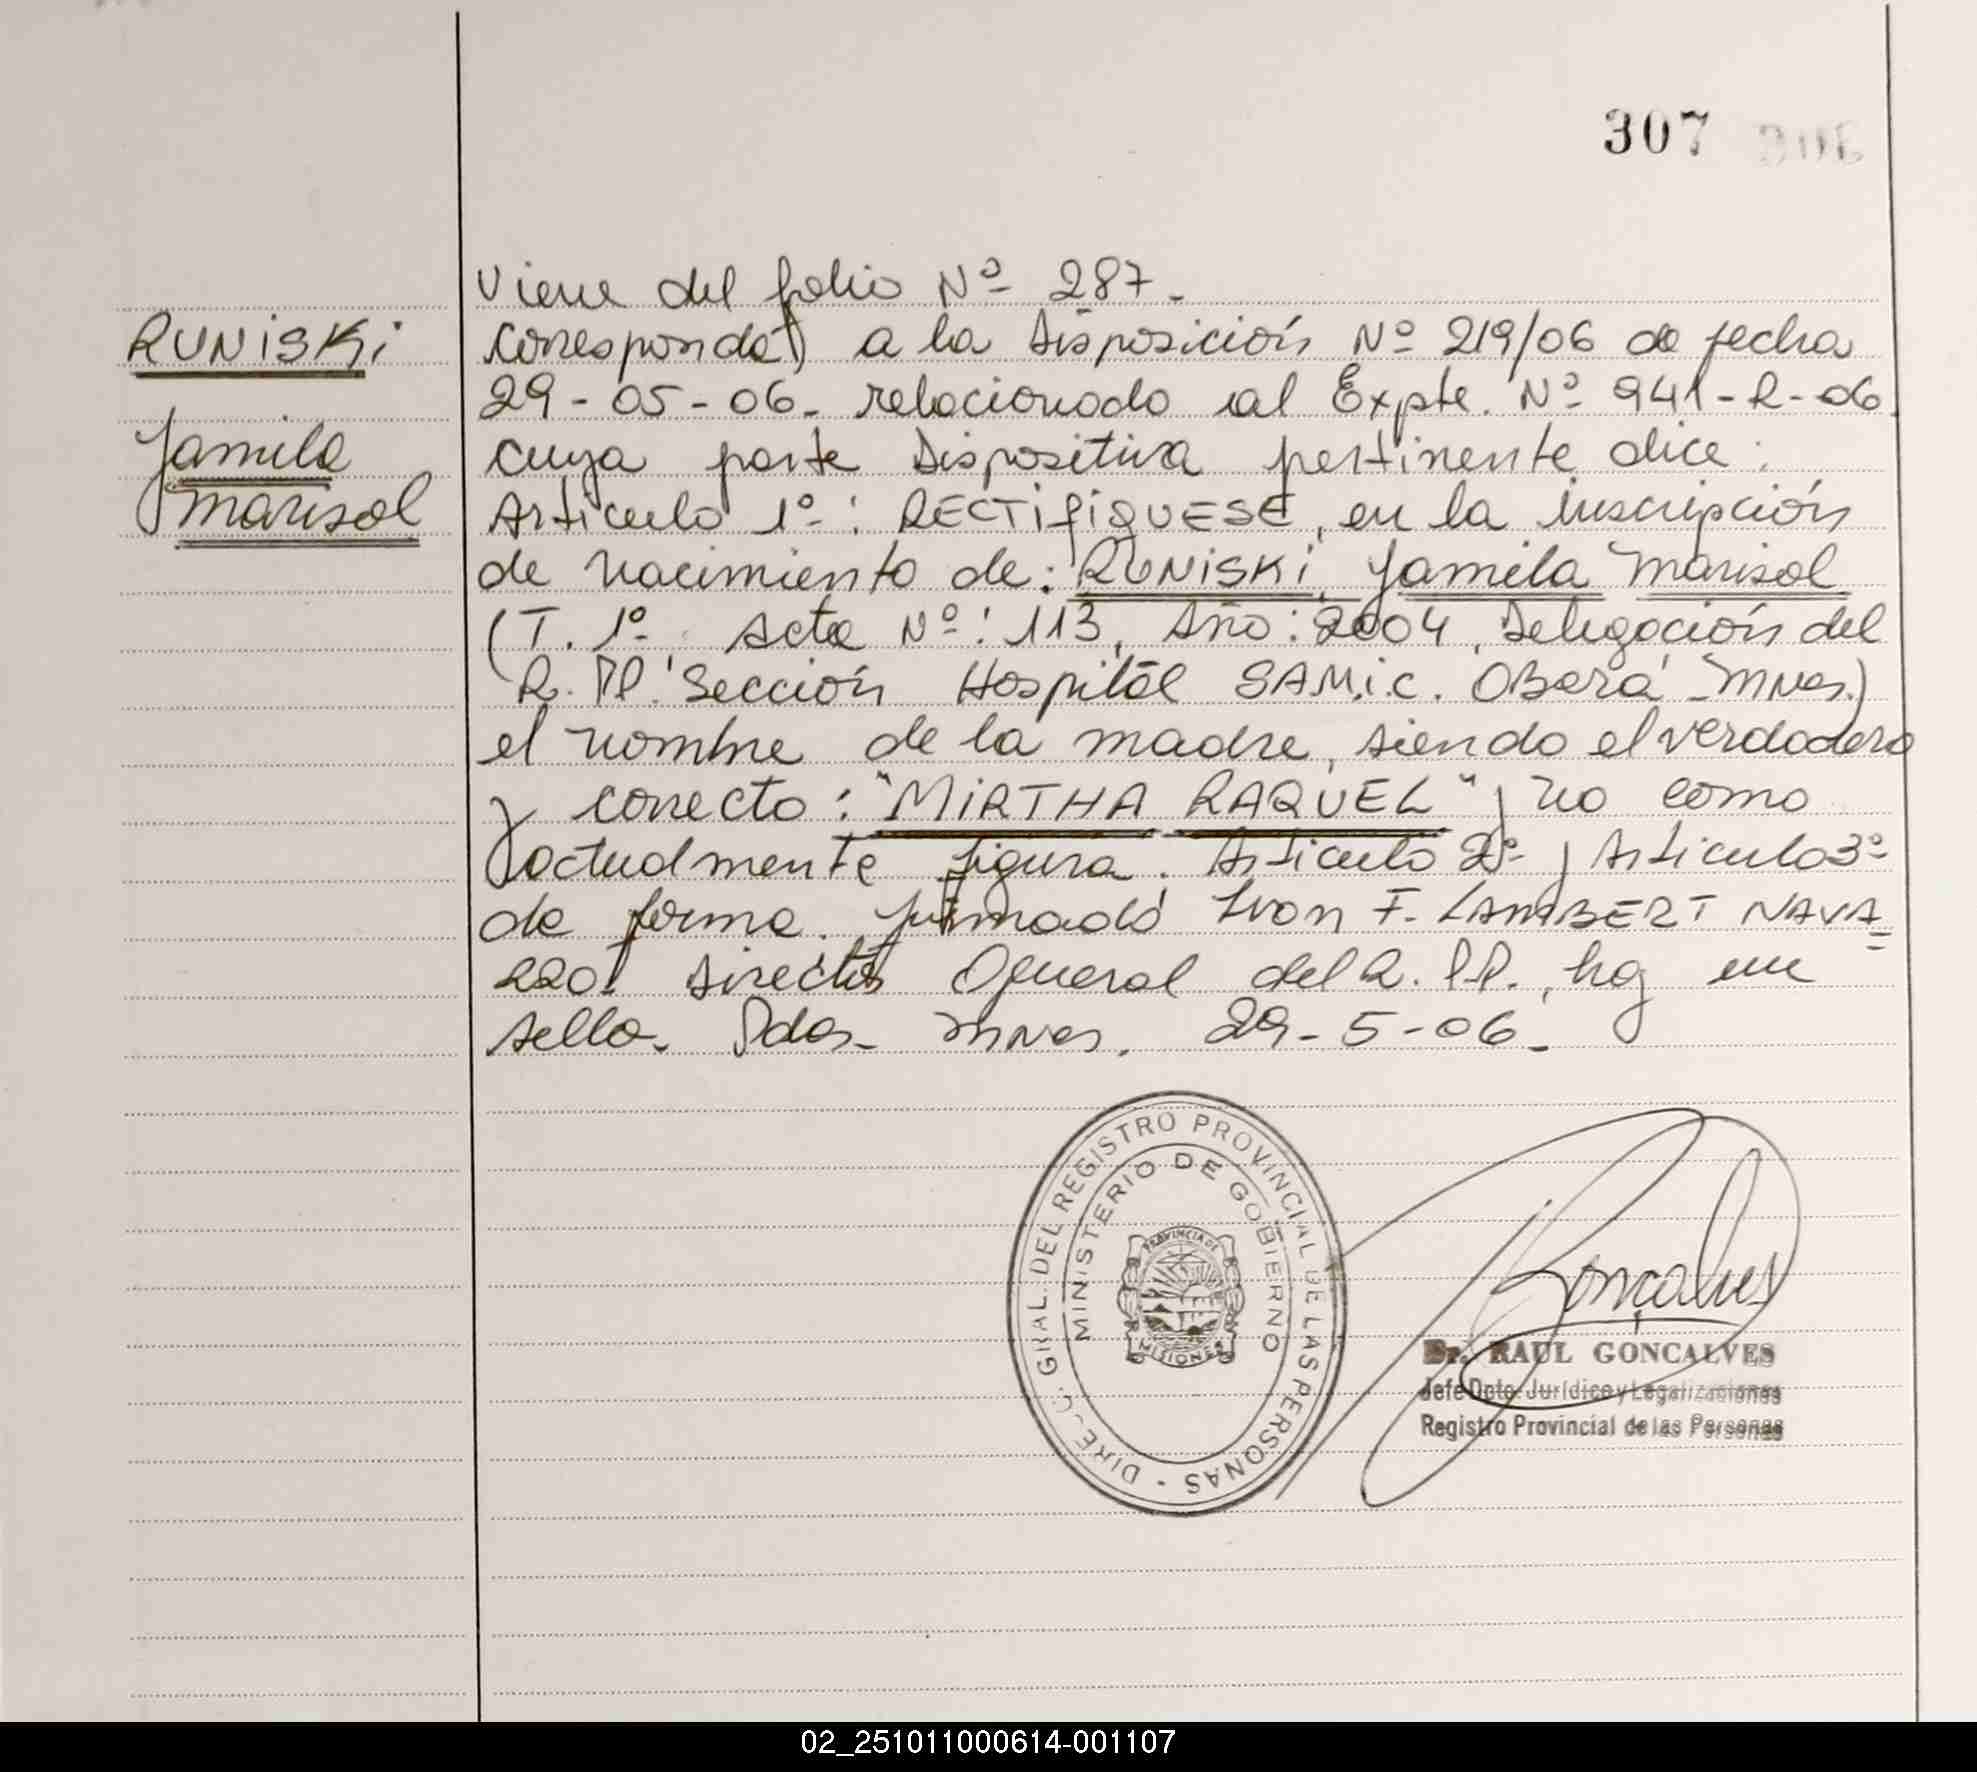 307 306
Viene del folio Nº 287.-
RUNiSKi
corresponde a la Disposición Nº 219/06 de fecha
29-05-06- relacionado al Expte. Nº 941-R-06
Jamila
cuya parte Dispositiva pertinente dice:
Marisol
Articulo 1º-: RECTIFIQUESE, en la inscripción
de nacimiento de: RUNiSKi, Jamila Marisol
(T. 1º- Acta Nº: 113, Año: 2004, Delegación del
R.PP. Sección Hospital SAM.i.C. OBerá-Mnes.)
el nombre de la madre, siendo el verdadero
y correcto: "MiRTHA RAQUEL" y no como
actualmente figura. Articulo 2º- y Articulo 3º-
de forma. firmado Ivan F. LAMBERT NAVA-
RRO. Director General del R.PP., hay un
sello. Pdas- Mnes. 29-5-06.-
DIRECC. GRAL. DEL REGISTRO PROVINCIAL DE LAS PERSONAS -
MINISTERIO DE GOBIERNO
PROVINCIA DE
MISIONES
Goncalves
Dr. RAUL GONCALVES
Jefe Dpto. Jurídico y Legalizaciones
Registro Provincial de las Personas
02_251011000614-001107